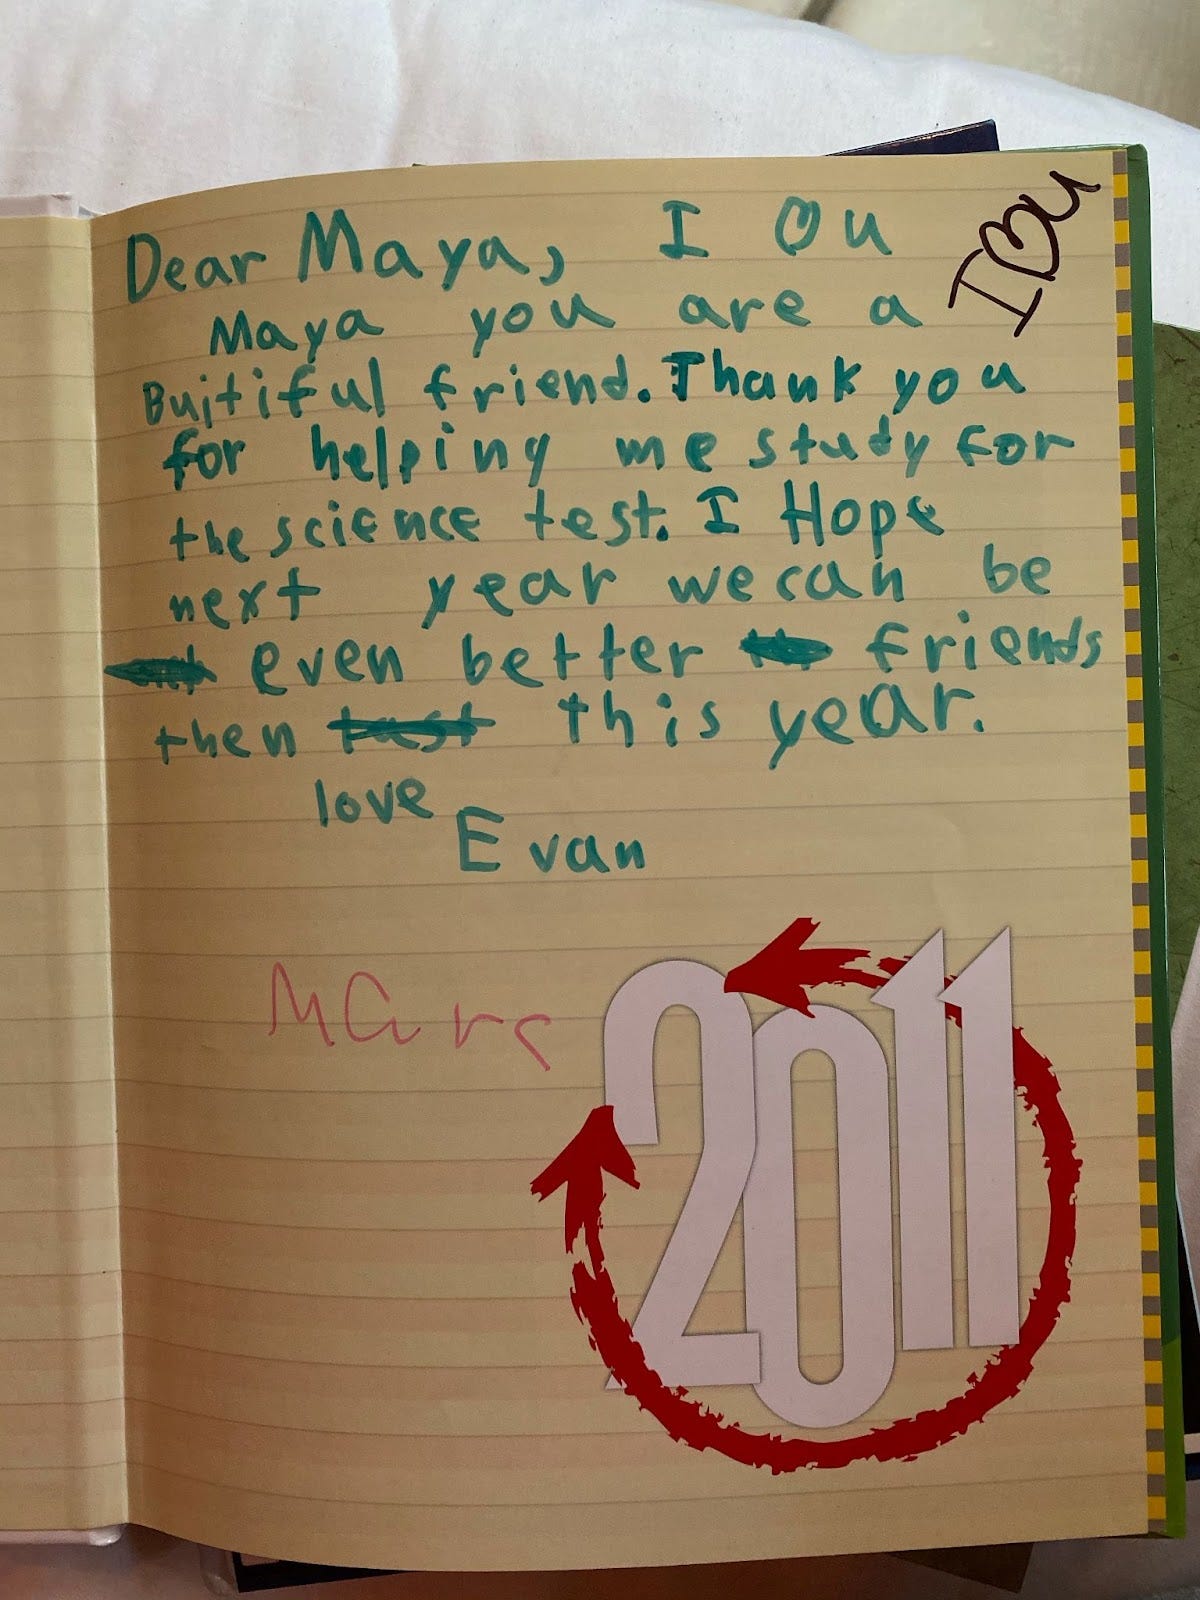 Dear Maya, I ♡ u
I ♡ u
Maya you are a
Buitiful friend. Thank you
for helping me study for
the science test. I Hope
next year we can be
even better friends
then last this year.
love
Evan
Marc
2011